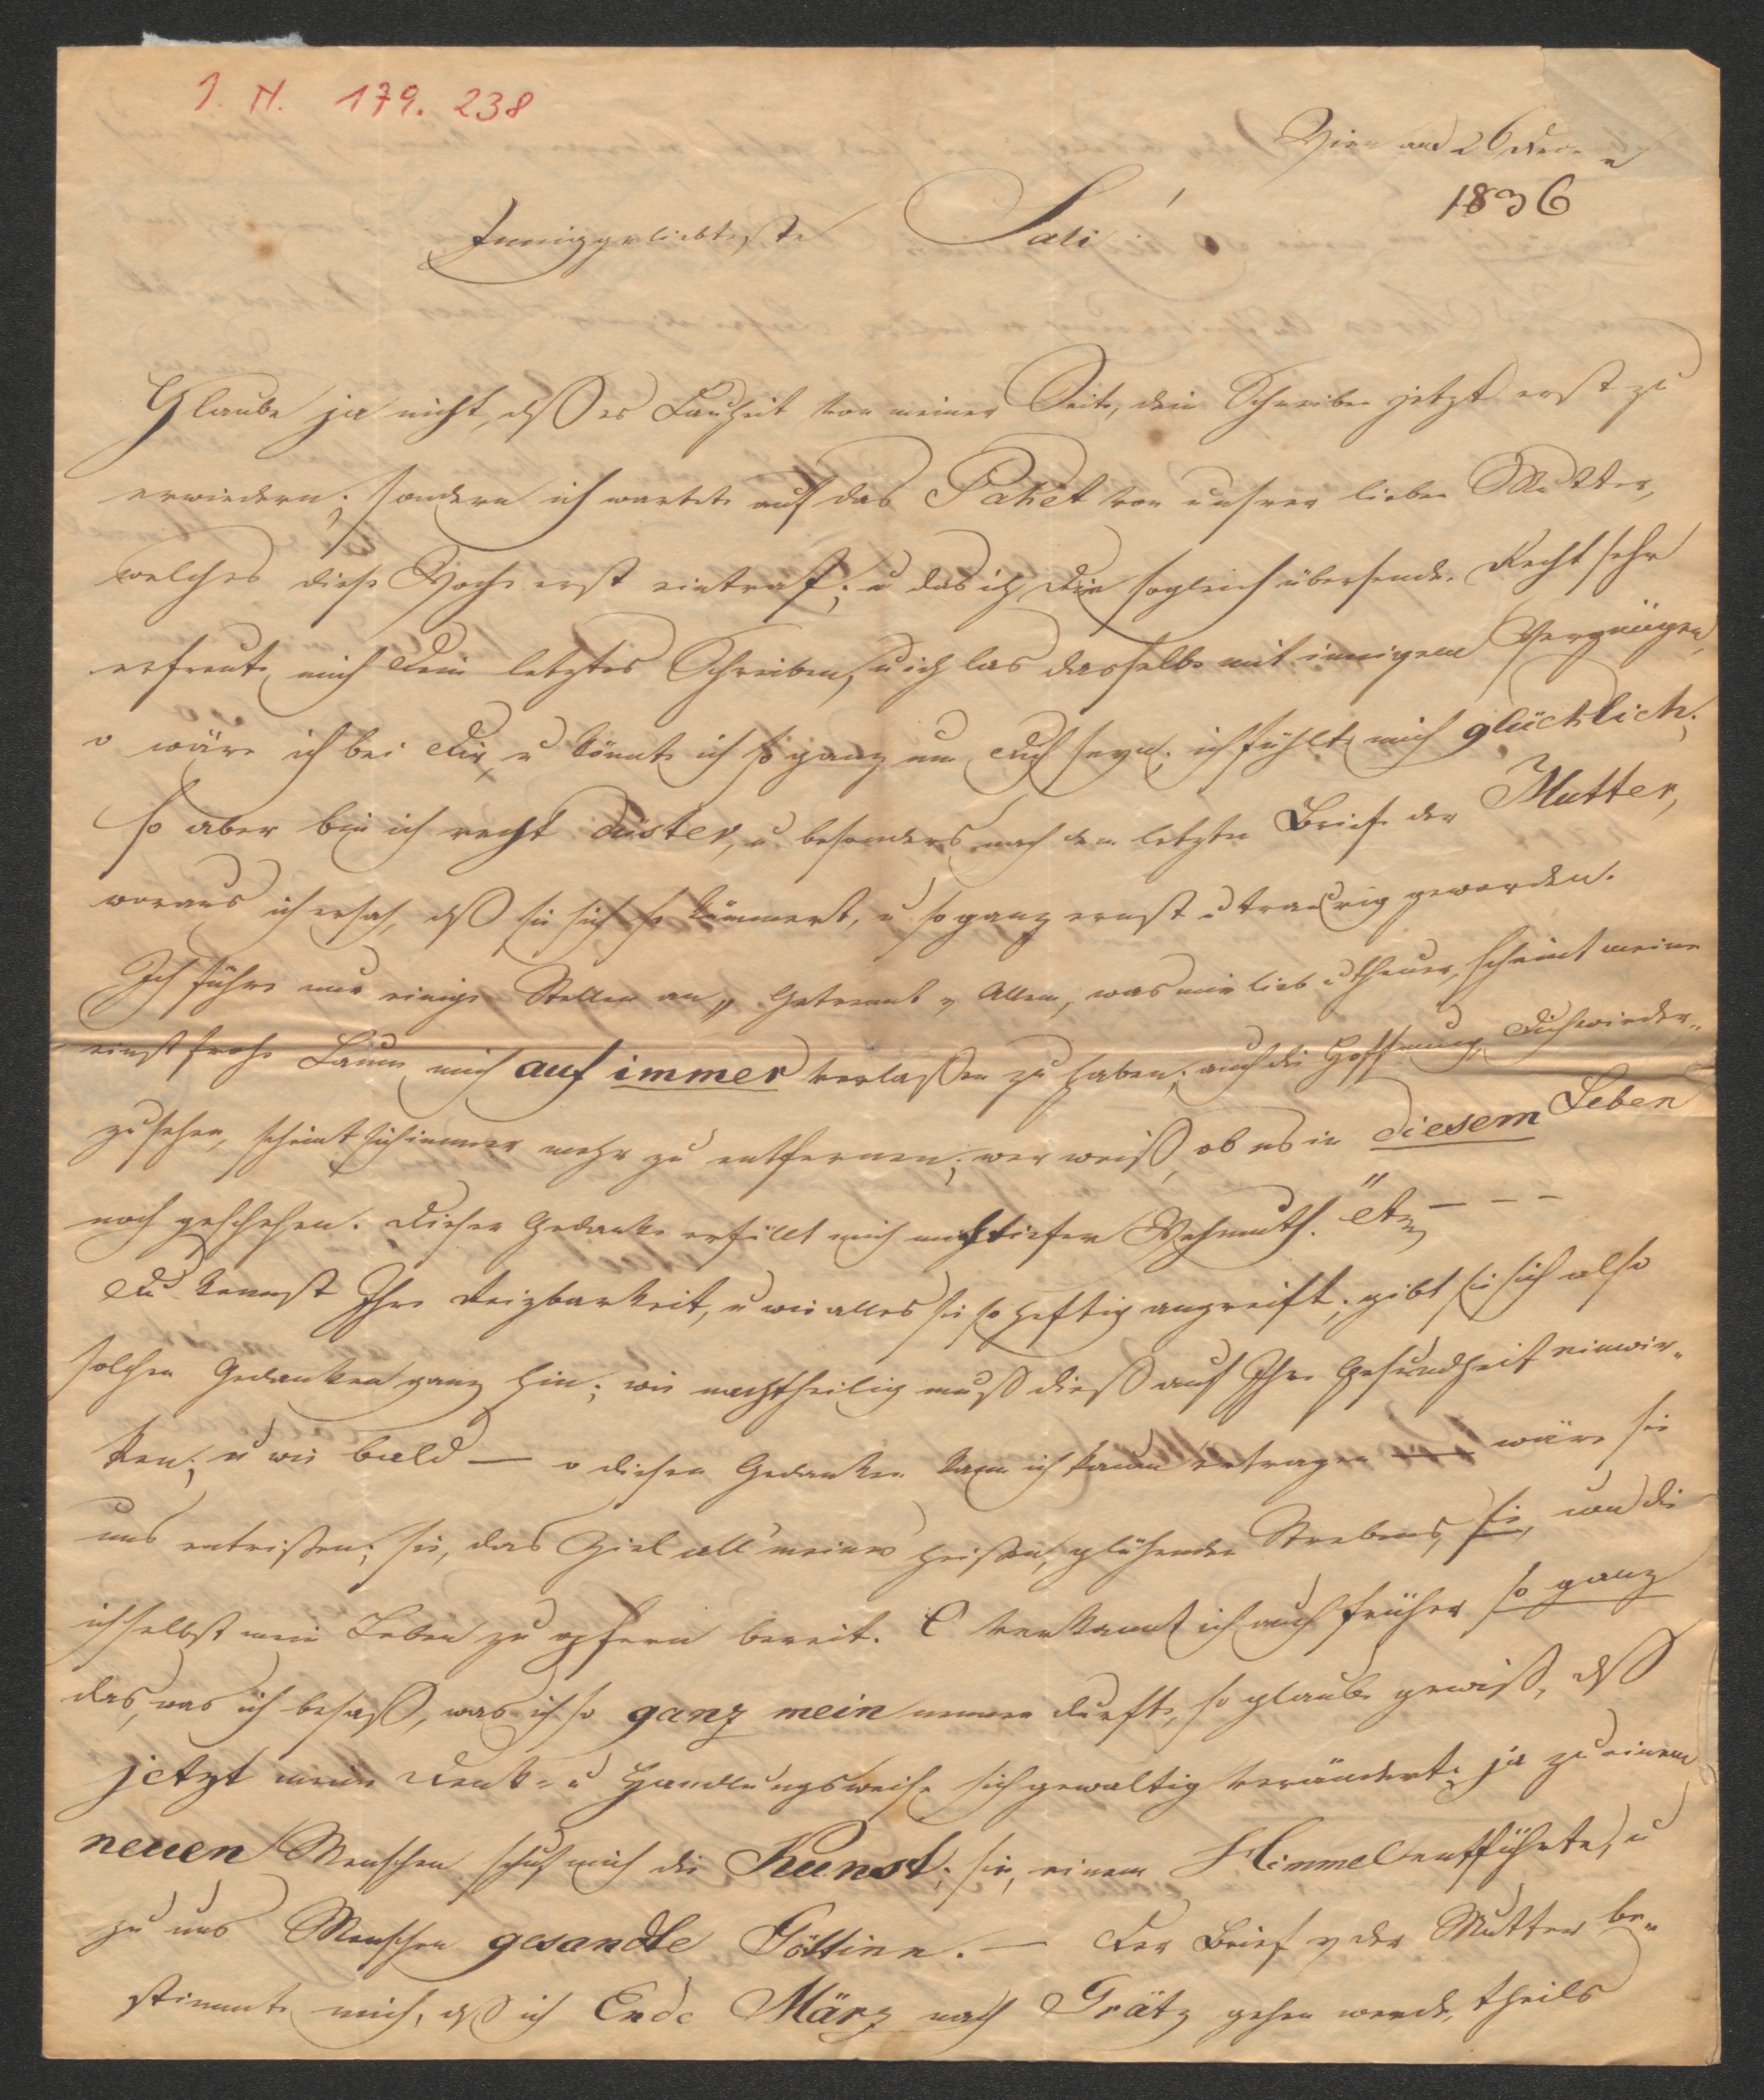 I. N. 179. 238
Wien am 26
1836
Inniggeliebteste Sali!
Glaube ja nicht, dß es Lauheit von meiner Seite, dein Schreiben jetzt erst zu
erwiedern; sondern ich wartete auf das Paket von unsrer lieben Mutter,
welches diese Woche erst eintraf; u das ich Dir sogleich übersende. Recht sehr
erfreute mich Dein letztes Schreiben, u ich las dasselbe mit innigem Vergnügen,
o wäre ich bei Dir, u könnte ich so ganz um Dich seyn; ich fühlte mich glücklich;
so aber bin ich recht düster, u besonders nach dem letzten Briefe der Mutter,
woraus ich ersah, dß sie sich so kümmert, u so ganz ernst u traurig geworden.
Ich führe nur einige Stellen an „ Getrennt v Allem, was mir lieb u theuer, scheint meine
einst frohe Laune mich auf immer verlaßen zu haben; auch die Hoffnung Dich wieder-
zusehen, scheint sich immer mehr zu entfernen; wer weiß, ob es in diesem Leben
noch geschehen. Dieser Gedanke erfüllt mich mit tiefer Wehmuth." etz – – –
Du kennst Ihre Reizbarkeit, u wie alles sie so heftig angreift; gibt sie sich also
solchen Gedanken ganz hin; wie nachtheilig muß dieß auf Ihre Gesundheit einwir-
ken; u wie bald — o diesen Gedanken kann ich kaum ertragen — wäre sie
uns entrißen; sie, das Ziel all' meines heißen, glühenden Strebens, sie, um die
ich selbst mein Leben zu opfern bereit. O verkannt ich auch früher so ganz
das, was ich besaß, was ich so ganz mein nennen durfte, so glaube gewiß, dß
jetzt meine Denk- u Handlungsweise sich gewaltig veränderte; ja zu einem
neuen Menschen schuf mich die Kunst; sie, einem Himmel entführte, u
zu uns Menschen gesandte Göttinn. — Der Brief v der Mutter be-
stimmte mich, dß ich Ende März nach Grätz gehen werde, theils